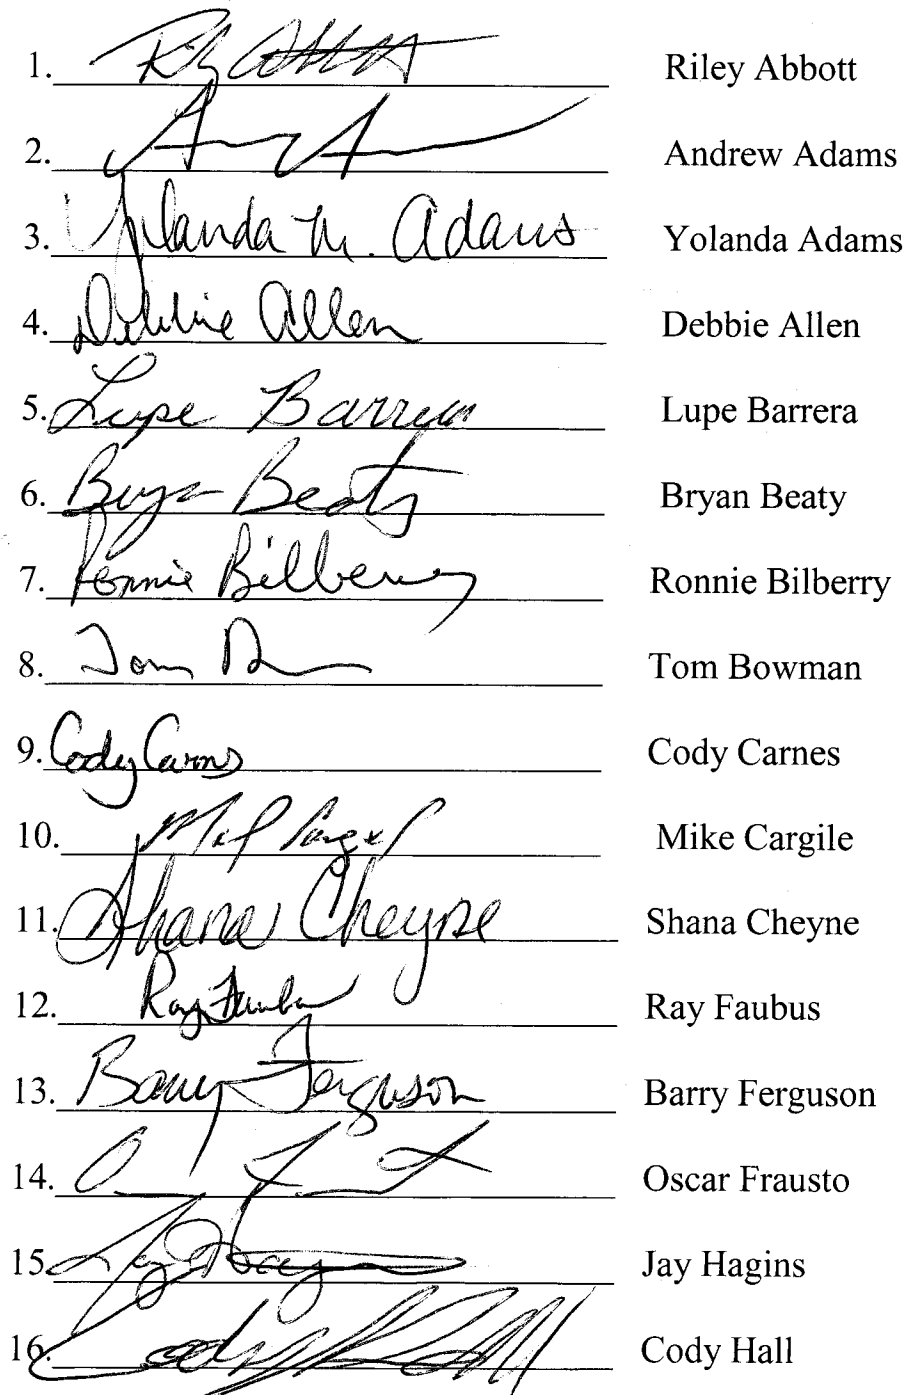 1. Riley Abbott
2. Andrew Adams
3. Yolanda M. Adams Yolanda Adams
4. Debbie Allen Debbie Allen
5. Lupe Barrera Lupe Barrera
6. Bryan Beaty Bryan Beaty
7. Ronnie Bilberry Ronnie Bilberry
8. Tom Tom Bowman
9. Cody Carnes Cody Carnes
10. Mike Cargile
11. Shana Cheyne Shana Cheyne
12. Ray Ray Faubus
13. Barry Ferguson Barry Ferguson
14. Oscar Frausto
15. Jay Jay Hagins
16. Cody Cody Hall